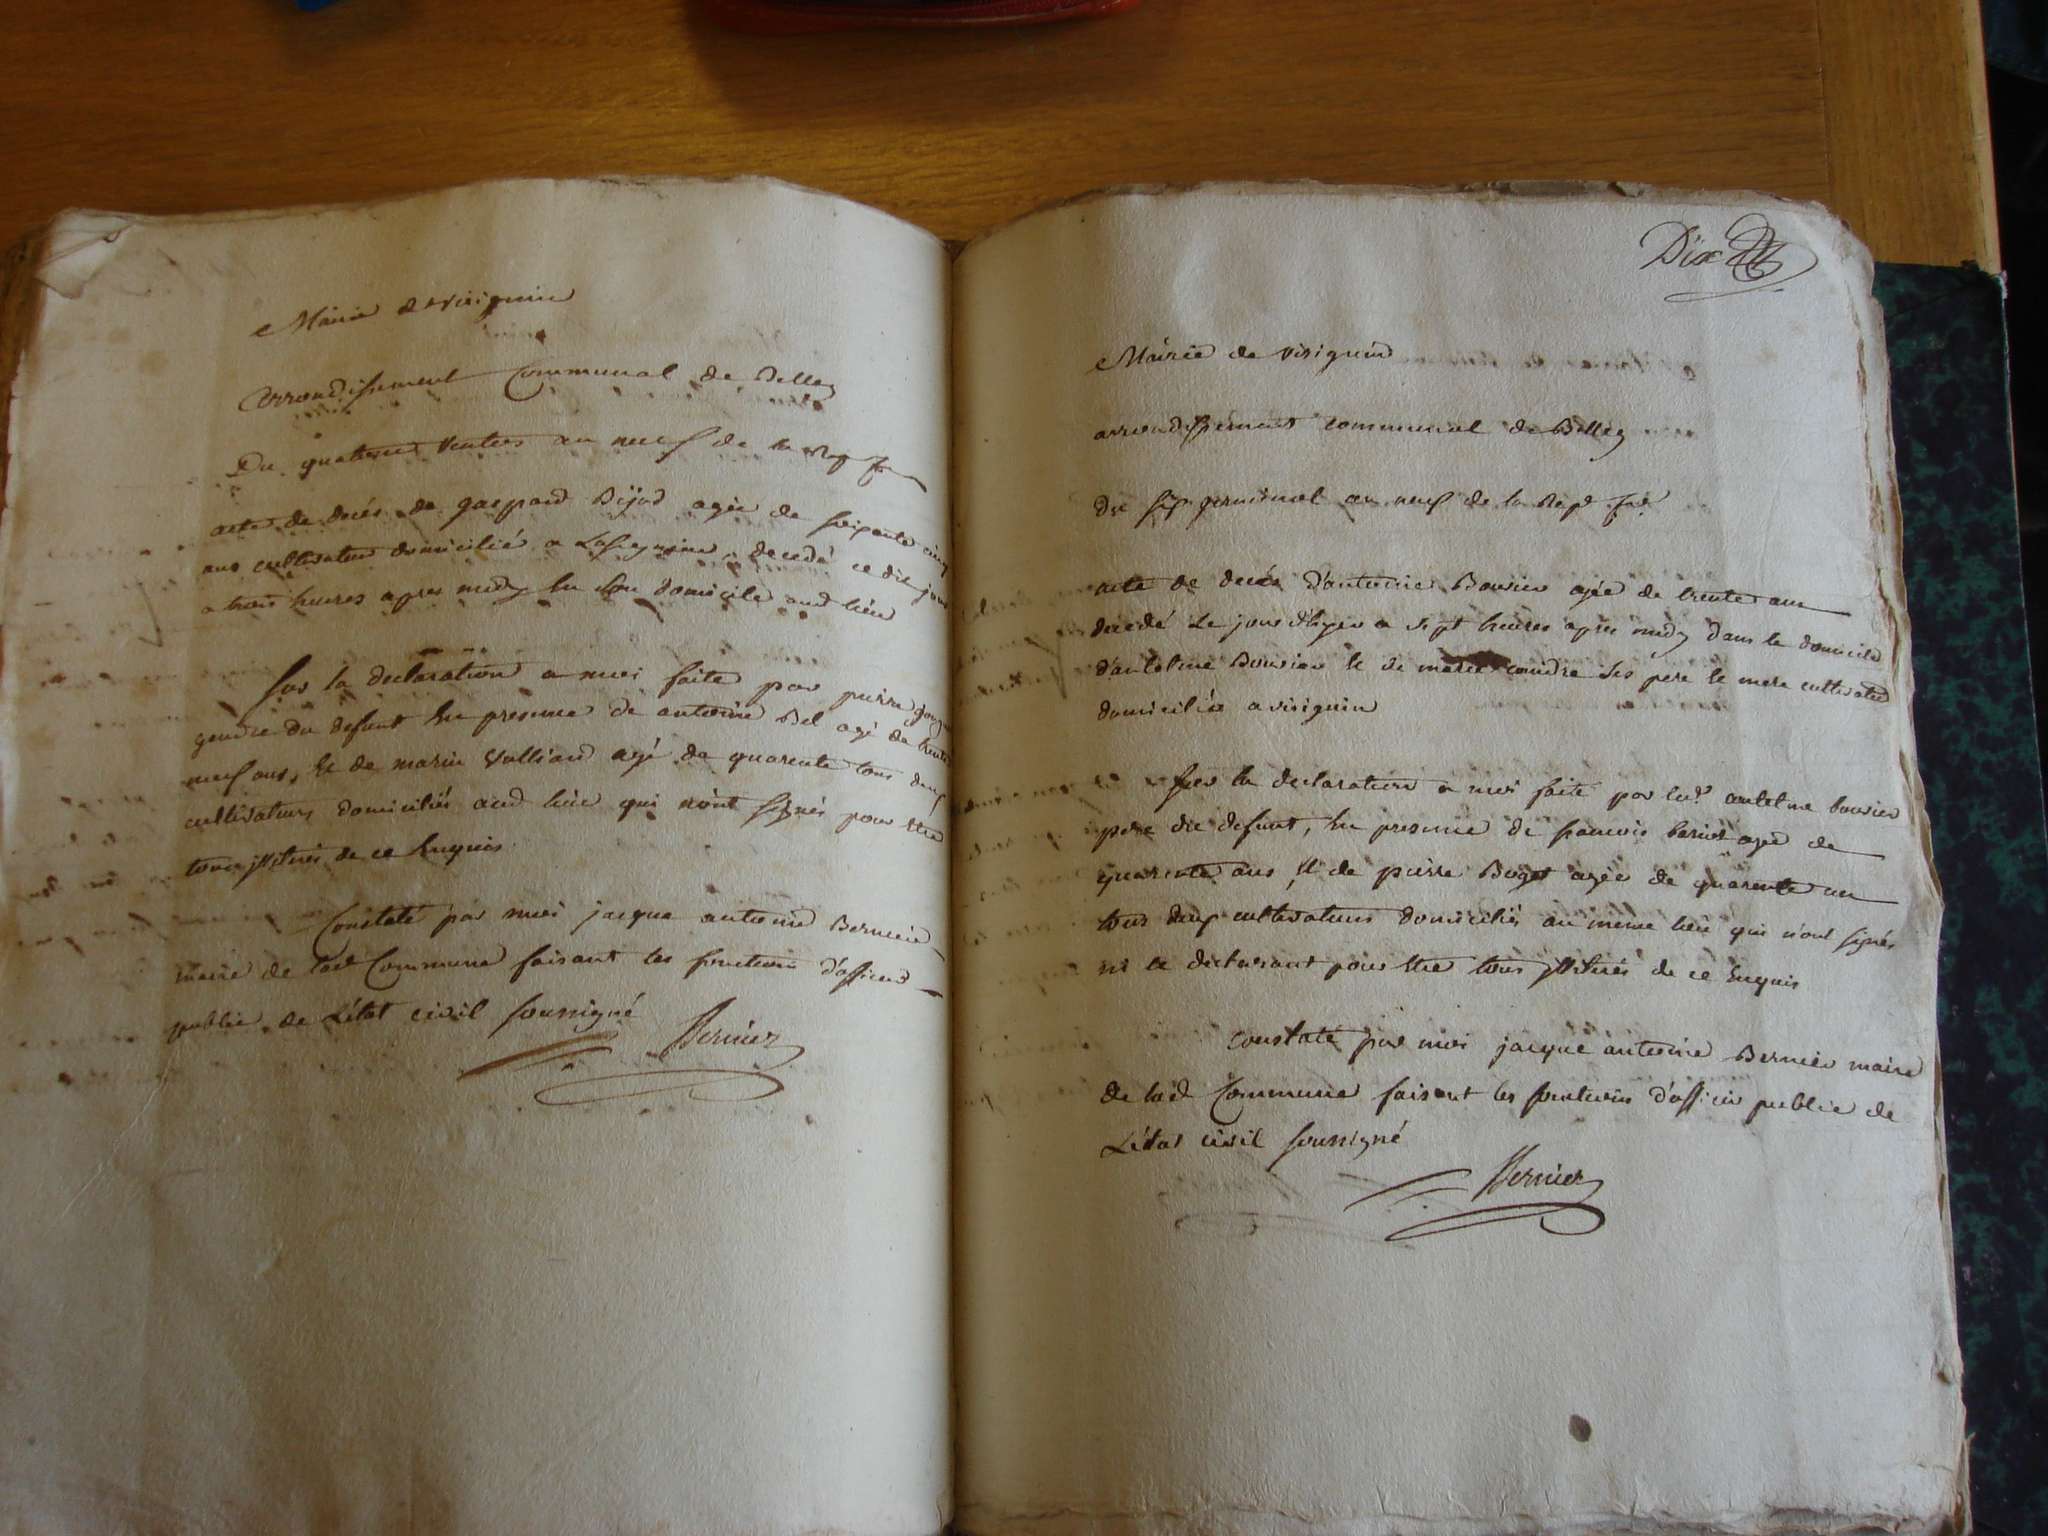 Mairie de virignin
Arrondissement Communal de Belley
Du quatorze Ventos an neuf de la Rep fr
acte de decés de gaspard Bijod agée de soixante cinq
ans cultivateur domicilié a decedé ce dit jour
a trois heures apres midy en son domicile aud lieu
sur la declaration a moi faite par pierre
gendre du defunt en presence de antoine Bel agé de trente
neuf ans, et de marin Vulliand agé de quarente tous deux
cultivateurs domiciliés aud lieu qui n'ont signés pour etre
tous illiterés de ce Enquis
Constaté par moi jacque antoine Bernier
maire de lad Commune faisant les fonctions d'officier
public de L'état civil soussigné
Bernier
Dix
Mairie de virignin
arrondissement communal de Belley
du six germinal an neuf de la Rep fse
acte de decés d'antoine Bouvier agée de trente ans
decedé le jour d'hyer a sept heures apres midy dans le domicile
d'antelme Bouvier et de marie coindre ses pere et mere cultivateur
domiciliés a virignin
sur la declaration a moi faite par led antelme bouvier
pere du defunt, en presence de francois agée de
quarente ans, et de pierre Boget agée de quarente un
tous deux cultivateurs domiciliés au meme lieu qui n'ont signés
ni le declarant pour etre tous illiterés de ce Enquis
Constaté par moi jacque antoine Bernier maire
de lad Commune faisant les fonctions d'officier public de
L'état civil soussigné
Bernier